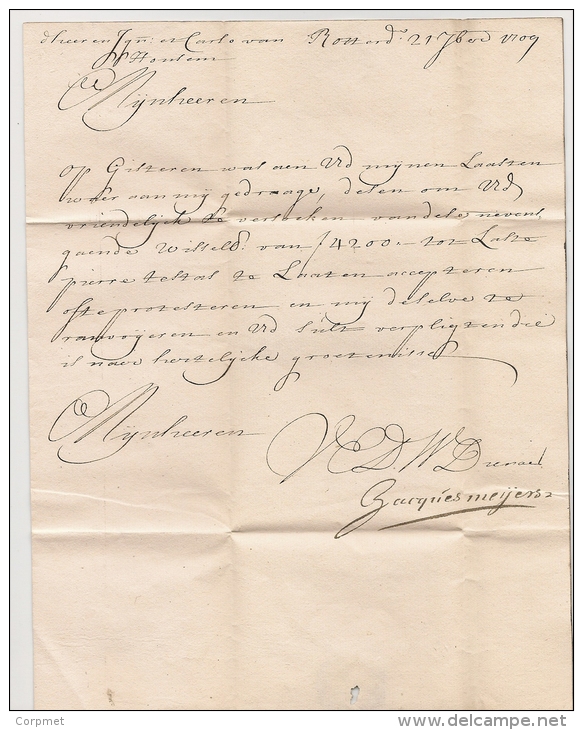 dheeren Jgn: et Carlo van Rotterd. 21 7bre 1709
Houtem
Mijnheeren
Op Gisteren was aen Vld mijnen Laasten
waer aan mij gedraage, desen om Vld
vriendelijck te versoeken van dese nevens
gaende Wissels van f 4200:- tot Laste
pierre testas te Laaten accepteren
ofte protesteren en mij deselve te
ranvoijeren en Vld sult verpligten die
is naer hertelijcke groetenisse
Mijnheeren
V E D W Dienaer
Jacques meijers
Corpmet
delcampe.net